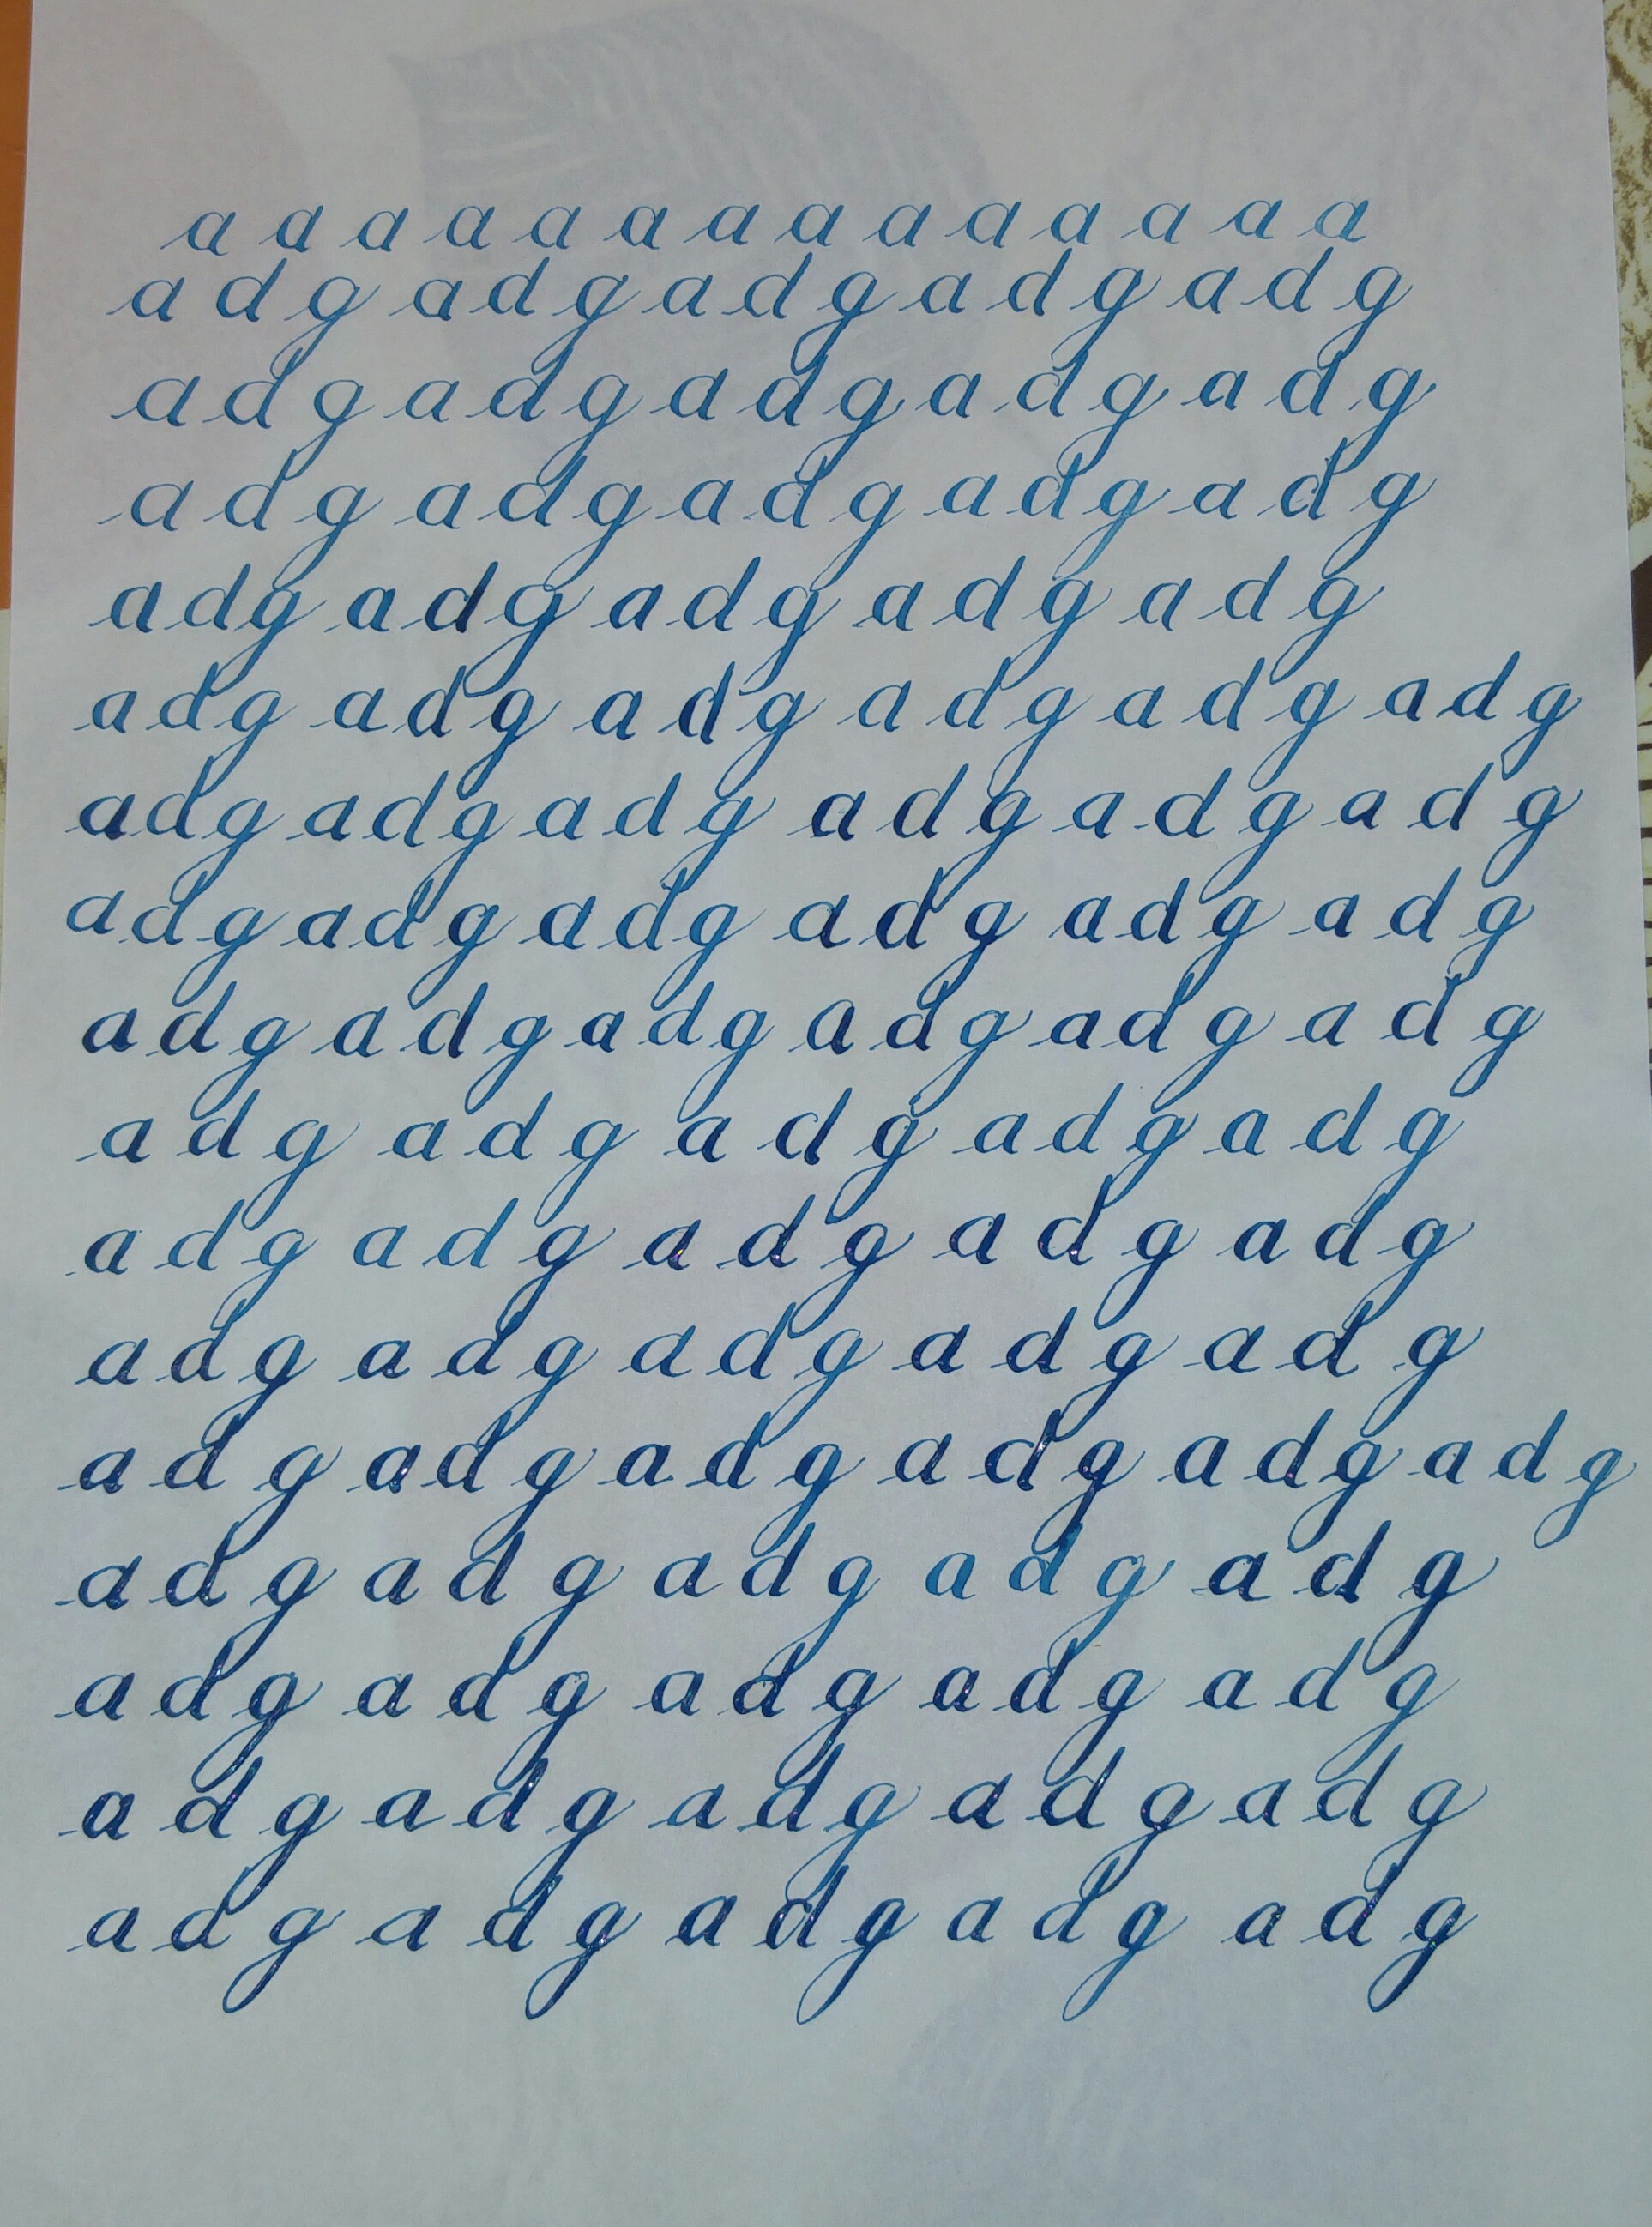 a a a a a a a a a a a a a a
a d g a d g a d g a d g a d g
a d g a d g a d g a d g a d g
a d g a d g a d g a d g a d g
a d g a d g a d g a d g a d g
a d g a d g a d g a d g a d g a d g
a d g a d g a d g a d g a d g a d g
a d g a d g a d g a d g a d g a d g
a d g a d g a d g a d g a d g a d g
a d g a d g a d g a d g a d g
a d g a d g a d g a d g a d g
a d g a d g a d g a d g a d g
a d g a d g a d g a d g a d g a d g
a d g a d g a d g a d g a d g
a d g a d g a d g a d g a d g
a d g a d g a d g a d g a d g
a d g a d g a d g a d g a d g